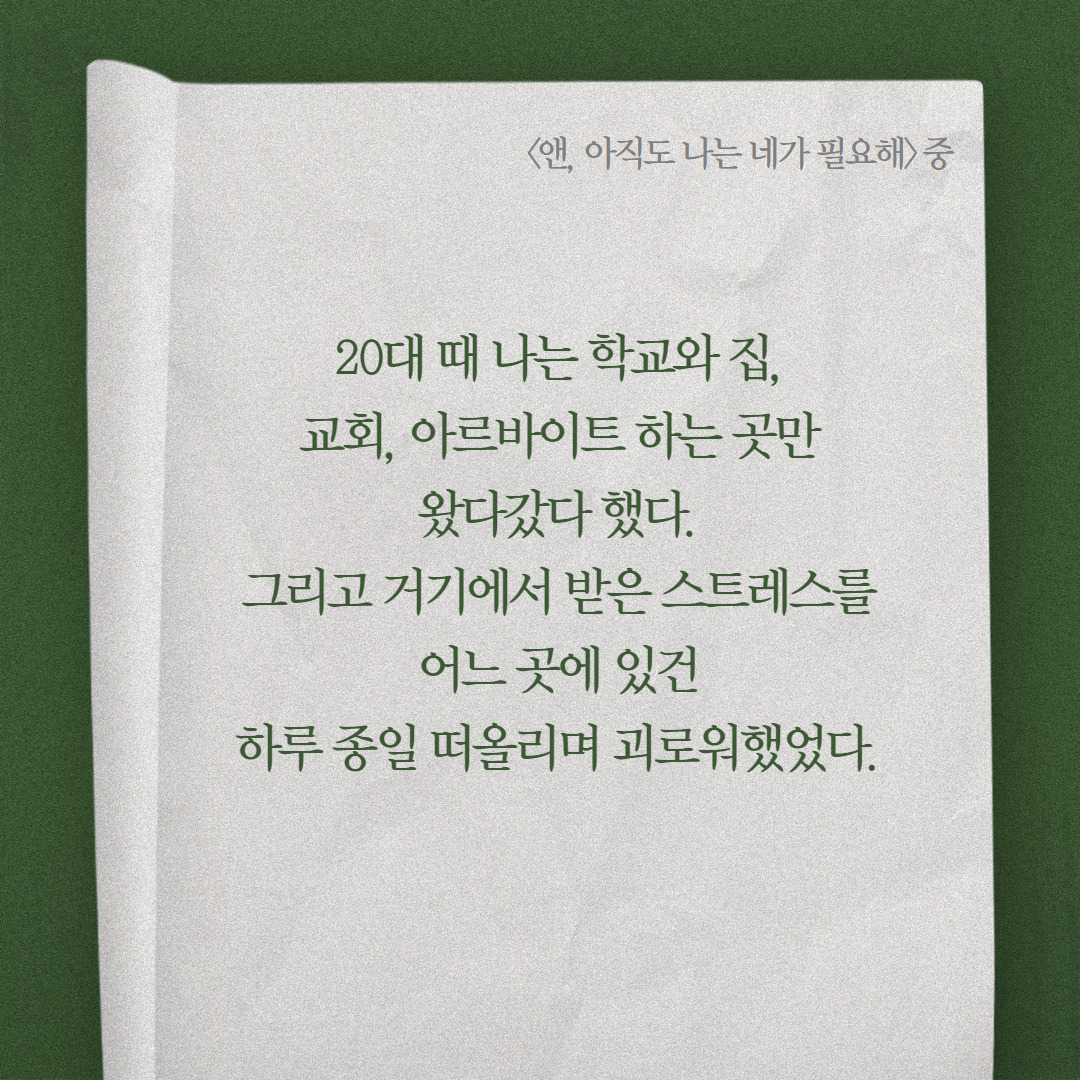 〈앤, 아직도 나는 네가 필요해〉 중
20대 때 나는 학교와 집,
교회, 아르바이트 하는 곳만
왔다갔다 했다.
그리고 거기에서 받은 스트레스를
어느 곳에 있건
하루 종일 떠올리며 괴로워했었다.